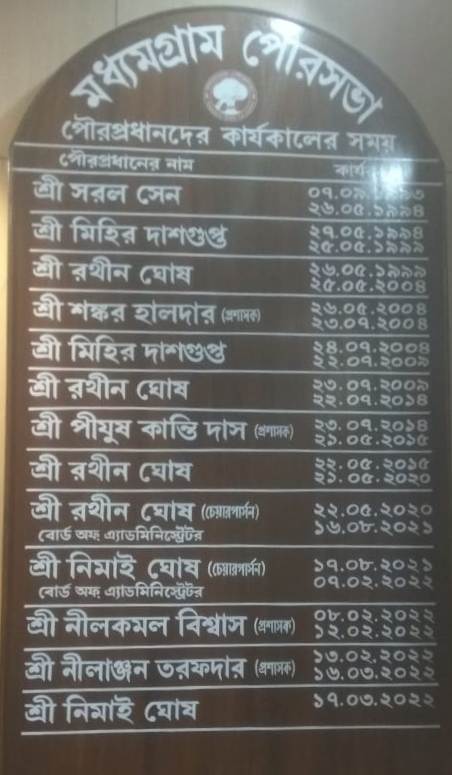 মধ্যমগ্রাম পৌরসভা
পৌরপ্রধানদের কার্যকালের সময়
পৌরপ্রধানের নাম কার্য
শ্রী সরল সেন
২৬.০৫.১৯৯৪
শ্রী মিহির দাশগুপ্ত ২৭.০৫.১৯৯৪
২৫.০৫.১৯৯৯
শ্রী রথীন ঘোষ ২৬.০৫.১৯৯৯
২৫.০৫.২০০৪
শ্রী শঙ্কর হালদার (প্রশাসক) ২৬.০৫.২০০৪
২৩.০৭.২০০৪
শ্রী মিহির দাশগুপ্ত ২৪.০৭.২০০৪
২২.০৭.২০০৯
শ্রী রথীন ঘোষ ২৩.০৭.২০০৯
২২.০৭.২০১৪
শ্রী পীযুষ কান্তি দাস (প্রশাসক) ২৩.০৭.২০১৪
২১.০৫.২০১৫
শ্রী রথীন ঘোষ ২২.০৫.২০১৫
২১.০৫.২০২০
শ্রী রথীন ঘোষ (চেয়ারপার্সন) ২২.০৫.২০২০
বোর্ড অফ্ এ্যাডমিনিস্ট্রেটর ১৬.০৮.২০২১
শ্রী নিমাই ঘোষ (চেয়ারপার্সন) ১৭.০৮.২০২১
বোর্ড অফ্ এ্যাডমিনিস্ট্রেটর ০৭.০২.২০২২
শ্রী নীলকমল বিশ্বাস (প্রশাসক) ০৮.০২.২০২২
১২.০২.২০২২
শ্রী নীলাঞ্জন তরফদার (প্রশাসক) ১৩.০২.২০২২
১৬.০৩.২০২২
শ্রী নিমাই ঘোষ ১৭.০৩.২০২২